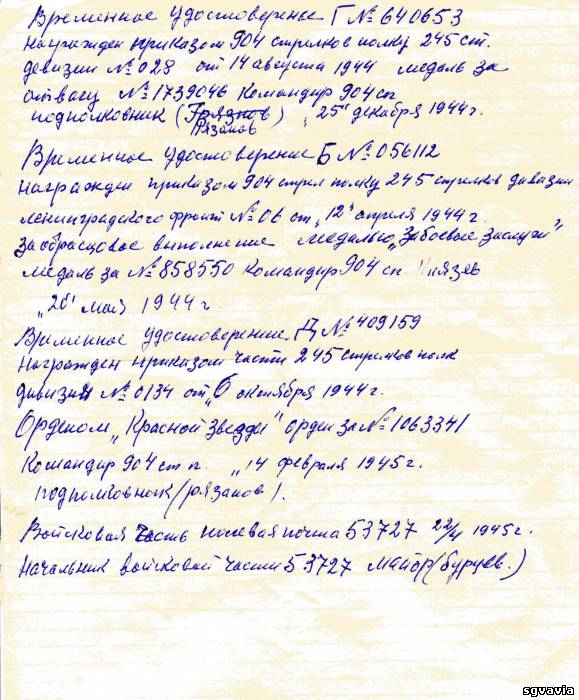 Временное удостоверенье Г № 640653
Награжден приказом 904 стрелков полку 245 ст.
девизии № 028 от 14 августа 1944 медаль за
отвагу № 1739046 Командир 904 сп
подполковник (Грязнов) „25" декабря 1944 г.
Рязанов
Временное удостоверение Б № 056112
Награжден приказом 904 стрел полку 245 стрелков дивизии
ленинградского фронт № 06 от „12" апреля 1944 г.
за образцовое выполнение медалью „За боевые заслуги"
медаль за № 858550 Командир 904 сп. Князев
„26" май 1944 г
Временное удостоверение Д № 409159
Награжден приказом части 245 стрелков полк
дивизия № 0134 от „6 октября 1944 г.
Орденом „Красной звезды" орден за № 1063341
Командир 904 ст п „14 февраля 1945 г.
подполковник (рязанов).
Войсковая часть полевая почта 53727 22/4 1945 г.
Начальник войсковой части 53727 майор (бурцев.)
sgvavia